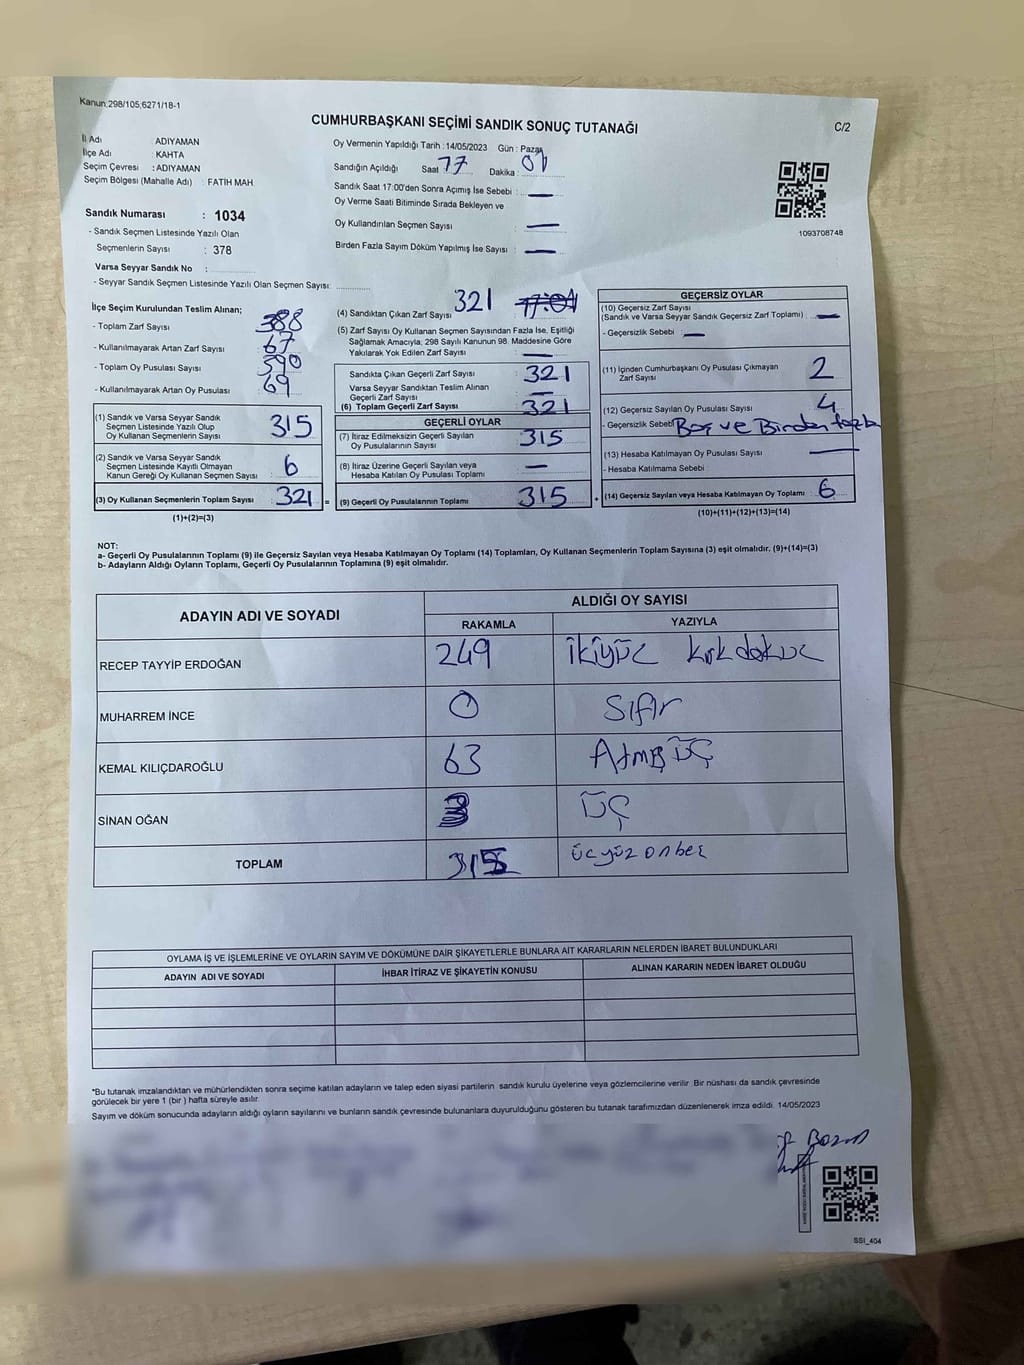 Kanun:298/105,6271/18-1
CUMHURBAŞKANI SEÇİMİ SANDIK SONUÇ TUTANAĞI
C/2
İl Adı : ADIYAMAN
İlçe Adı : KAHTA
Seçim Çevresi : ADIYAMAN
Seçim Bölgesi (Mahalle Adı) : FATİH MAH.
Sandık Numarası : 1034
- Sandık Seçmen Listesinde Yazılı Olan
Seçmenlerin Sayısı : 378
Varsa Seyyar Sandık No :
- Seyyar Sandık Seçmen Listesinde Yazılı Olan Seçmen Sayısı:
Oy Vermenin Yapıldığı Tarih :14/05/2023 Gün : Pazar
Sandığın Açıldığı Saat 17 Dakika :
Sandık Saat 17:00'den Sonra Açımış İse Sebebi : —
Oy Verme Saati Bitiminde Sırada Bekleyen ve
Oy Kullandırılan Seçmen Sayısı : —
Birden Fazla Sayım Döküm Yapılmış İse Sayısı : —
1093708748
İlçe Seçim Kurulundan Teslim Alınan;
- Toplam Zarf Sayısı 388
- Kullanılmayarak Artan Zarf Sayısı 67
- Toplam Oy Pusulası Sayısı 390
- Kullanılmayarak Artan Oy Pusulası 69
(1) Sandık ve Varsa Seyyar Sandık
Seçmen Listesinde Yazılı Olup
Oy Kullanan Seçmenlerin Sayısı 315
(2) Sandık ve Varsa Seyyar Sandık
Seçmen Listesinde Kayıtlı Olmayan
Kanun Gereği Oy Kullanan Seçmen Sayısı : 6
(3) Oy Kullanan Seçmenlerin Toplam Sayısı 321 =
(1)+(2)=(3)
(4) Sandıktan Çıkan Zarf Sayısı 321 17:01
(5) Zarf Sayısı Oy Kullanan Seçmen Sayısından Fazla İse, Eşitliği
Sağlamak Amacıyla; 298 Sayılı Kanunun 98. Maddesine Göre
Yakılarak Yok Edilen Zarf Sayısı —
Sandıkta Çıkan Geçerli Zarf Sayısı 321
Varsa Seyyar Sandıktan Teslim Alınan
Geçerli Zarf Sayısı —
(6) Toplam Geçerli Zarf Sayısı 321
GEÇERLİ OYLAR
(7) İtiraz Edilmeksizin Geçerli Sayılan
Oy Pusulalarının Sayısı 315
(8) İtiraz Üzerine Geçerli Sayılan veya
Hesaba Katılan Oy Pusulası Toplamı —
(9) Geçerli Oy Pusulalarının Toplamı 315 +
GEÇERSİZ OYLAR
(10) Geçersiz Zarf Sayısı
(Sandık ve Varsa Seyyar Sandık Geçersiz Zarf Toplamı) —
- Geçersizlik Sebebi : —
(11) İçinden Cumhurbaşkanı Oy Pusulası Çıkmayan
Zarf Sayısı 2
(12) Geçersiz Sayılan Oy Pusulası Sayısı 4
- Geçersizlik Sebebi Boş ve Birden fazla
(13) Hesaba Katılmayan Oy Pusulası Sayısı —
- Hesaba Katılmama Sebebi
(14) Geçersiz Sayılan veya Hesaba Katılmayan Oy Toplamı 6
(10)+(11)+(12)+(13)=(14)
NOT:
a- Geçerli Oy Pusulalarının Toplamı (9) ile Geçersiz Sayılan veya Hesaba Katılmayan Oy Toplamı (14) Toplamları, Oy Kullanan Seçmenlerin Toplam Sayısına (3) eşit olmalıdır. (9)+(14)=(3)
b- Adayların Aldığı Oyların Toplamı, Geçerli Oy Pusulalarının Toplamına (9) eşit olmalıdır.
ADAYIN ADI VE SOYADI
ALDIĞI OY SAYISI
RAKAMLA YAZIYLA
RECEP TAYYİP ERDOĞAN 249 ikiyüz kırkdokuz
MUHARREM İNCE 0 Sıfır
KEMAL KILIÇDAROĞLU 63 Atmış üç
SİNAN OĞAN 3 üç
TOPLAM 315 üçyüz onbeş
OYLAMA İŞ VE İŞLEMLERİNE VE OYLARIN SAYIM VE DÖKÜMÜNE DAİR ŞİKAYETLERLE BUNLARA AİT KARARLARIN NELERDEN İBARET BULUNDUKLARI
ADAYIN ADI VE SOYADI İHBAR İTİRAZ VE ŞİKAYETİN KONUSU ALINAN KARARIN NEDEN İBARET OLDUĞU
*Bu tutanak imzalandıktan ve mühürlendikten sonra seçime katılan adayların ve talep eden siyasi partilerin sandık kurulu üyelerine veya gözlemcilerine verilir. Bir nüshası da sandık çevresinde
görülecek bir yere 1 (bir ) hafta süreyle asılır.
Sayım ve döküm sonucunda adayların aldığı oyların sayılarını ve bunların sandık çevresinde bulunanlara duyurulduğunu gösteren bu tutanak tarafımızdan düzenlenerek imza edildi. 14/05/2023
SSI_404